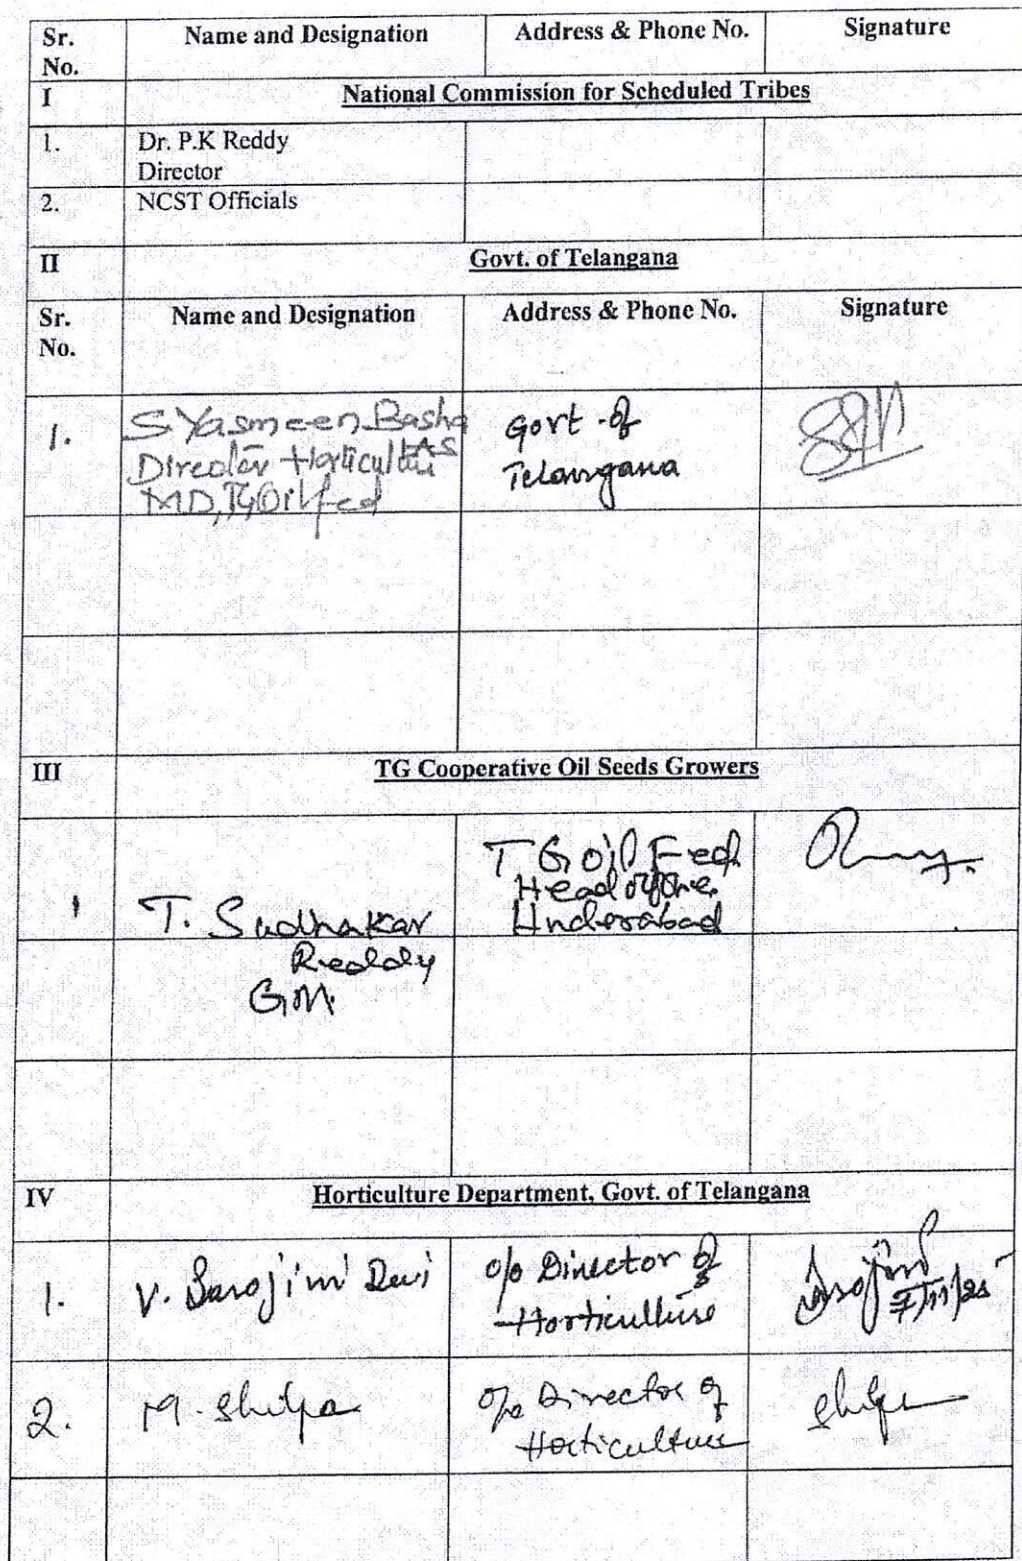 Sr.
No.
Name and Designation
Address & Phone No.
Signature
I
National Commission for Scheduled Tribes
1.
Dr. P.K Reddy
Director
2.
NCST Officials
II
Govt. of Telangana
Sr.
No.
Name and Designation
Address & Phone No.
Signature
1.
S Yasmeen Basha
IAS
Director Horticulture
MD, TG Oilfed
Govt of
Telangana
III
TG Cooperative Oil Seeds Growers
1
T. Sudhakar
Reddy
GM.
TG Oil Fed.
Head office
IV
Horticulture Department, Govt. of Telangana
1.
V. Sarojini Devi
o/o Director of
Horticulture
7/11/25
2.
M. Shilpa
o/o Director of
Horticulture
Shilpa